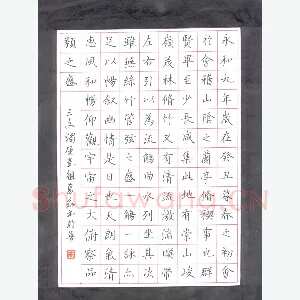 永和九年歲在癸丑暮春之初會
於會稽山陰之蘭亭脩禊事也群
賢畢至少長咸集此地有崇山峻
嶺茂林脩竹又有清流激湍映帶
左右引以為流觴曲水列坐其次
雖無絲竹管弦之盛一觴一詠亦
足以暢敘幽情是日也天朗氣清
惠風和暢仰觀宇宙之大俯察品
類之盛
Shufawang.CN